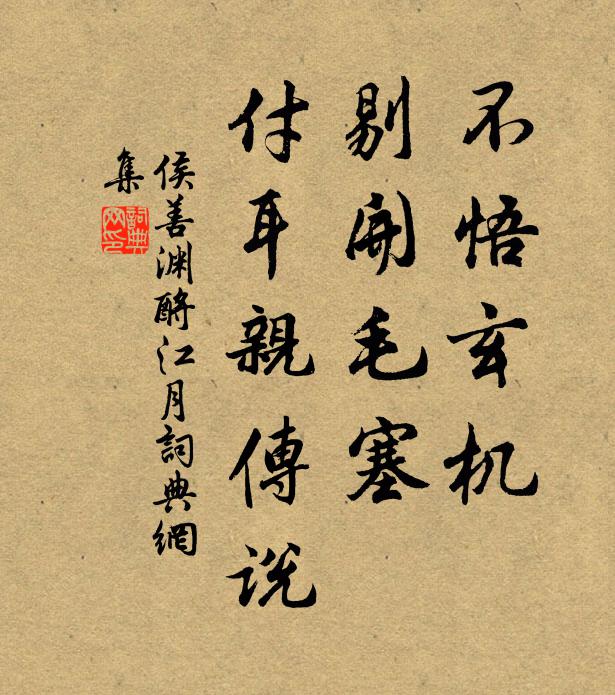 不悟玄机
剔開毛塞
付耳親傳说
侯善渊酹江月詞典網
集
詞典
网印